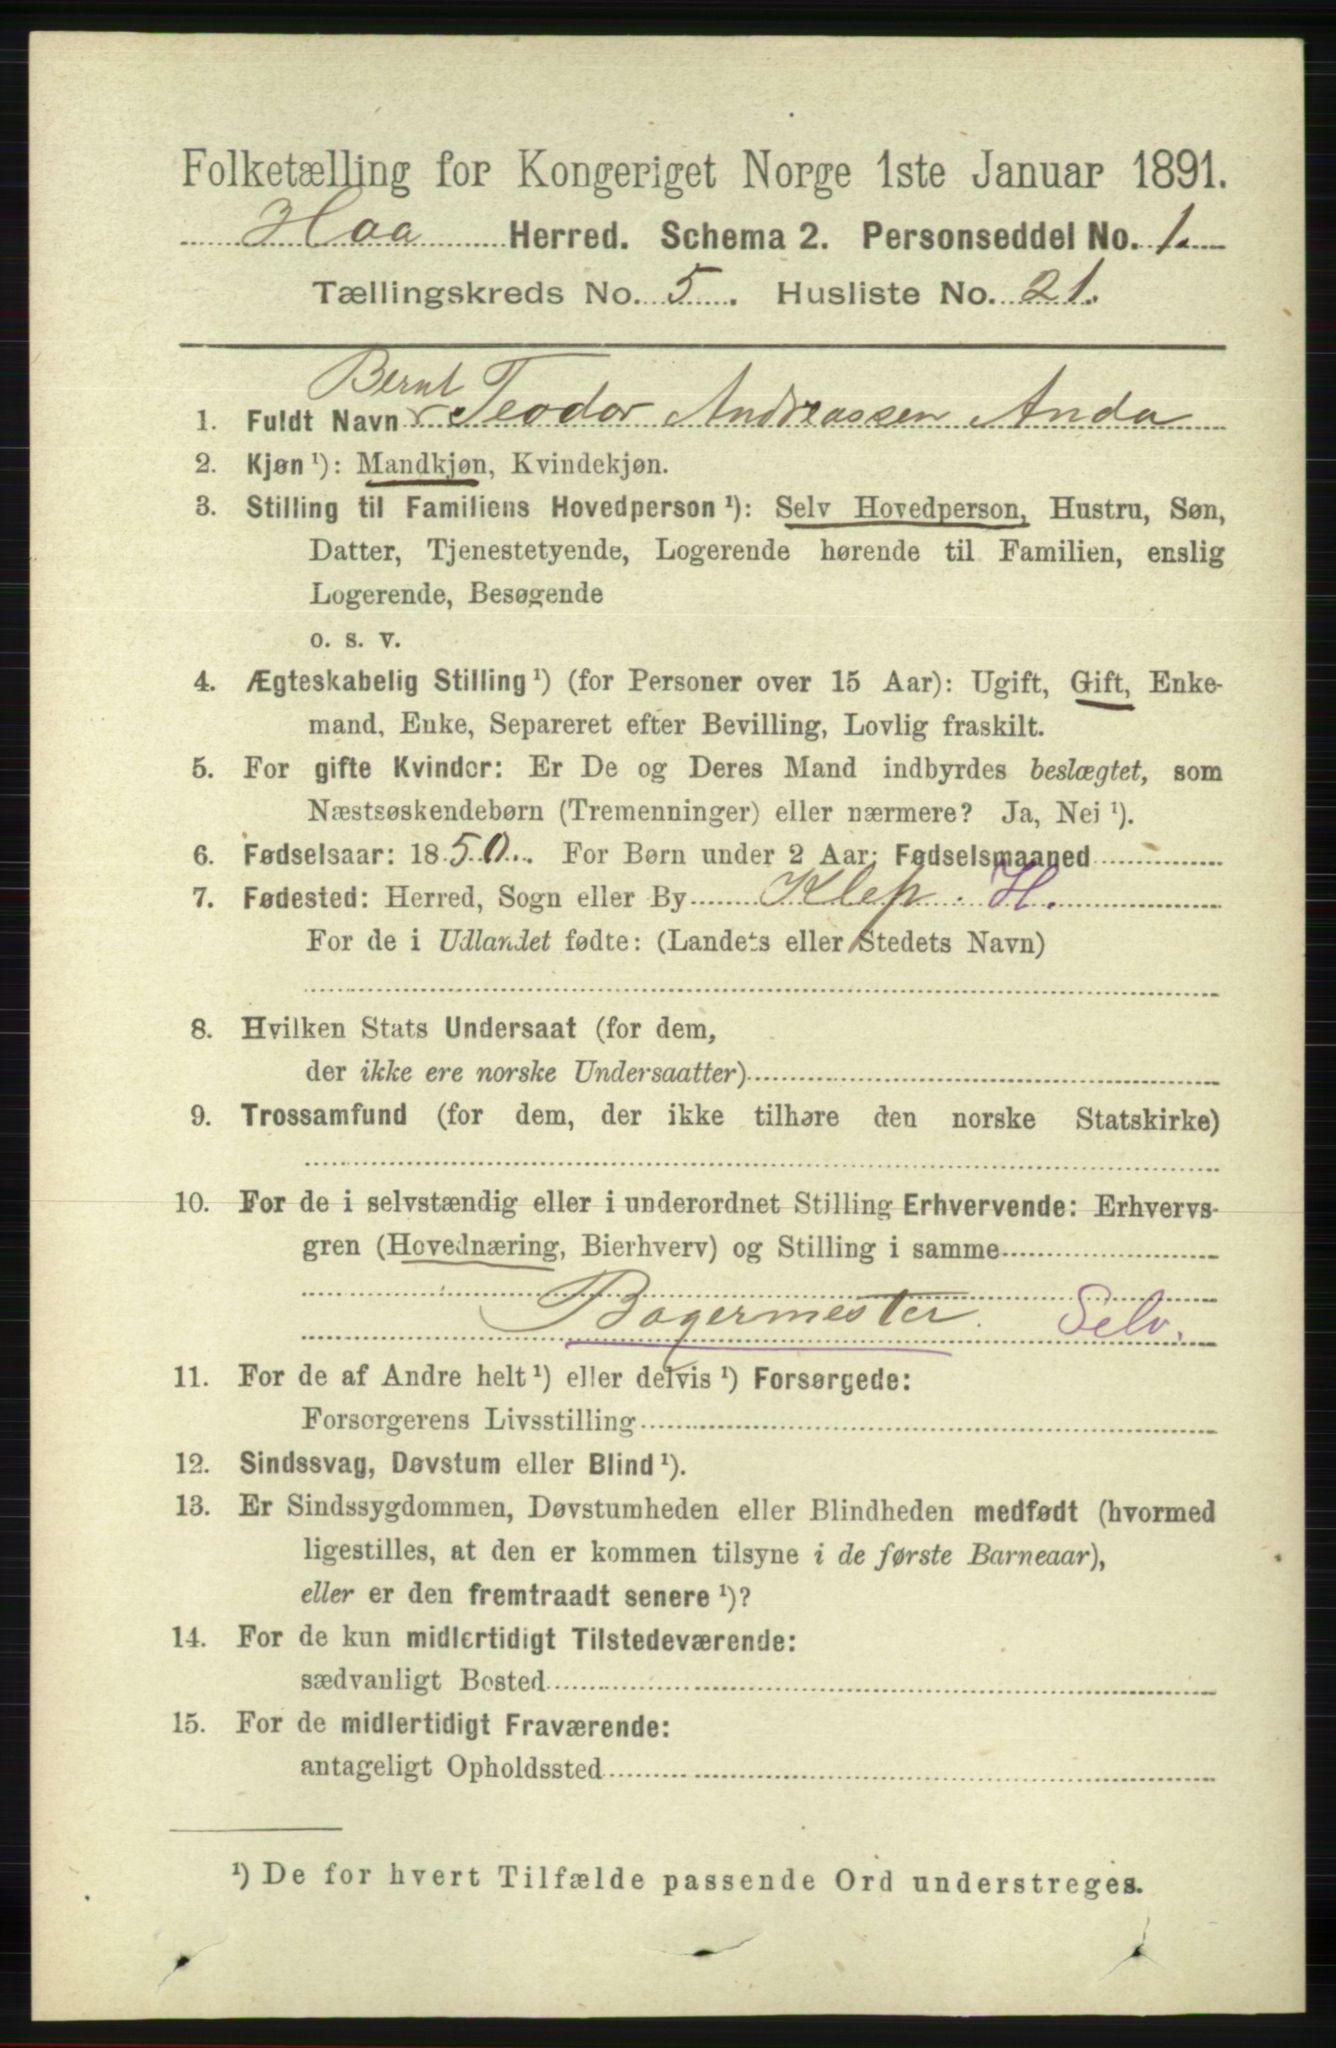 Folketælling for Kongeriget Norge 1ste Januar 1891.
Haa Herred. Schema 2. Personseddel No. 1.
Tællingskreds No. 5. Husliste No. 21.
Bernt
1. Fuldt Navn Teodor Andreassen Anda
2. Kjøn ¹): Mandkjøn, Kvindekjøn.
3. Stilling til Familiens Hovedperson ¹): Selv Hovedperson, Hustru, Søn,
Datter, Tjenestetyende, Logerende hørende til Familien, enslig
Logerende, Besøgende
o. s. v.
4. Ægteskabelig Stilling ¹) (for Personer over 15 Aar): Ugift, Gift, Enke-
mand, Enke, Separeret efter Bevilling, Lovlig fraskilt.
5. For gifte Kvinder: Er De og Deres Mand indbyrdes beslægtet, som
Næstsøskendebørn (Tremenninger) eller nærmere? Ja, Nei ¹).
6. Fødselsaar: 1850. For Børn under 2 Aar: Fødselsmaaned
7. Fødested: Herred, Sogn eller By Klep. H.
For de i Udlandet fødte: (Landets eller Stedets Navn)
8. Hvilken Stats Undersaat (for dem,
der ikke ere norske Undersaatter)
9. Trossamfund (for dem, der ikke tilhøre den norske Statskirke)
10. For de i selvstændig eller i underordnet Stilling Erhvervende: Erhvervs-
gren (Hovednæring, Bierhverv) og Stilling i samme
Bagermester. Selv.
11. For de af Andre helt ¹) eller delvis ¹) Forsørgede:
Forsørgerens Livsstilling
12. Sindssvag, Døvstum eller Blind ¹).
13. Er Sindssygdommen, Døvstumheden eller Blindheden medfødt (hvormed
ligestilles, at den er kommen tilsyne i de første Barneaar),
eller er den fremtraadt senere ¹)?
14. For de kun midlertidigt Tilstedeværende:
sædvanligt Bosted
15. For de midlertidigt Fraværende:
antageligt Opholdssted
¹) De for hvert Tilfælde passende Ord understreges.